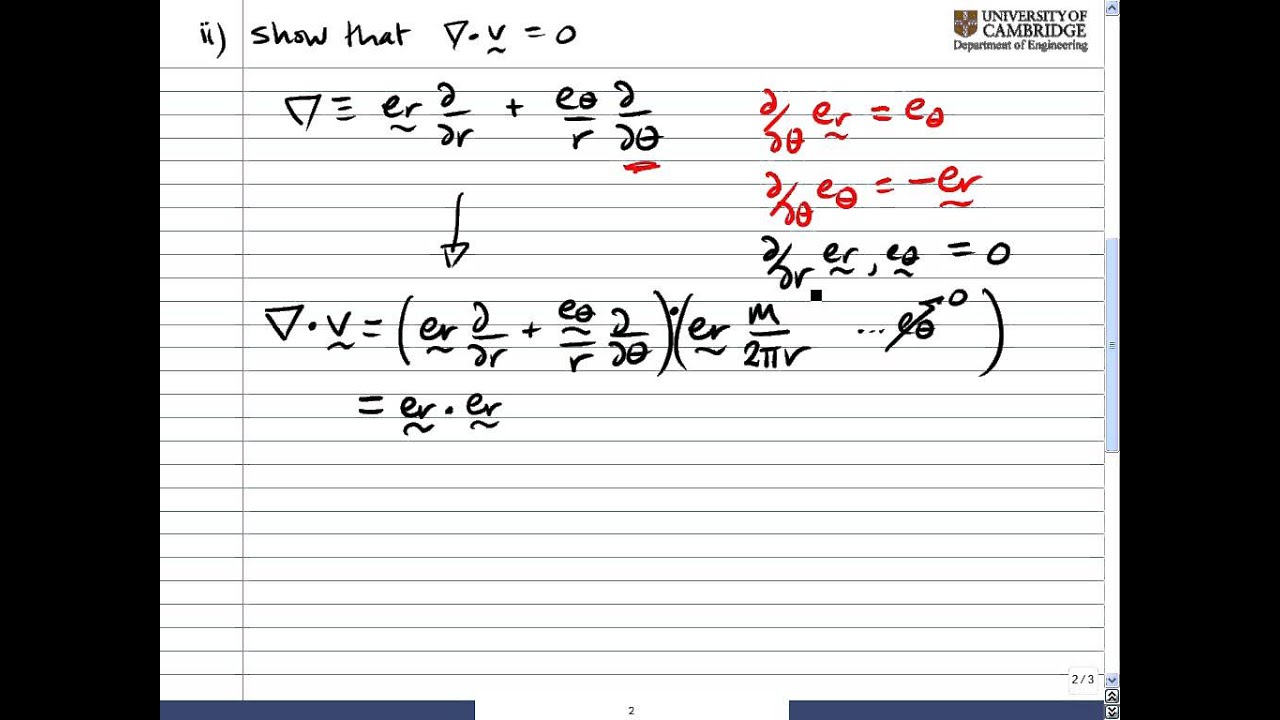 ii) show that ∇·v = 0
UNIVERSITY OF
CAMBRIDGE
Department of Engineering
∇ ≡ er ∂/∂r + eθ/r ∂/∂θ
∂/∂θ er = eθ
∂/∂θ eθ = -er
∂/∂r er, eθ = 0
∇·v = (er ∂/∂r + eθ/r ∂/∂θ)·(er m/2πr ... eθ 0)
= er · er
2 / 3
2